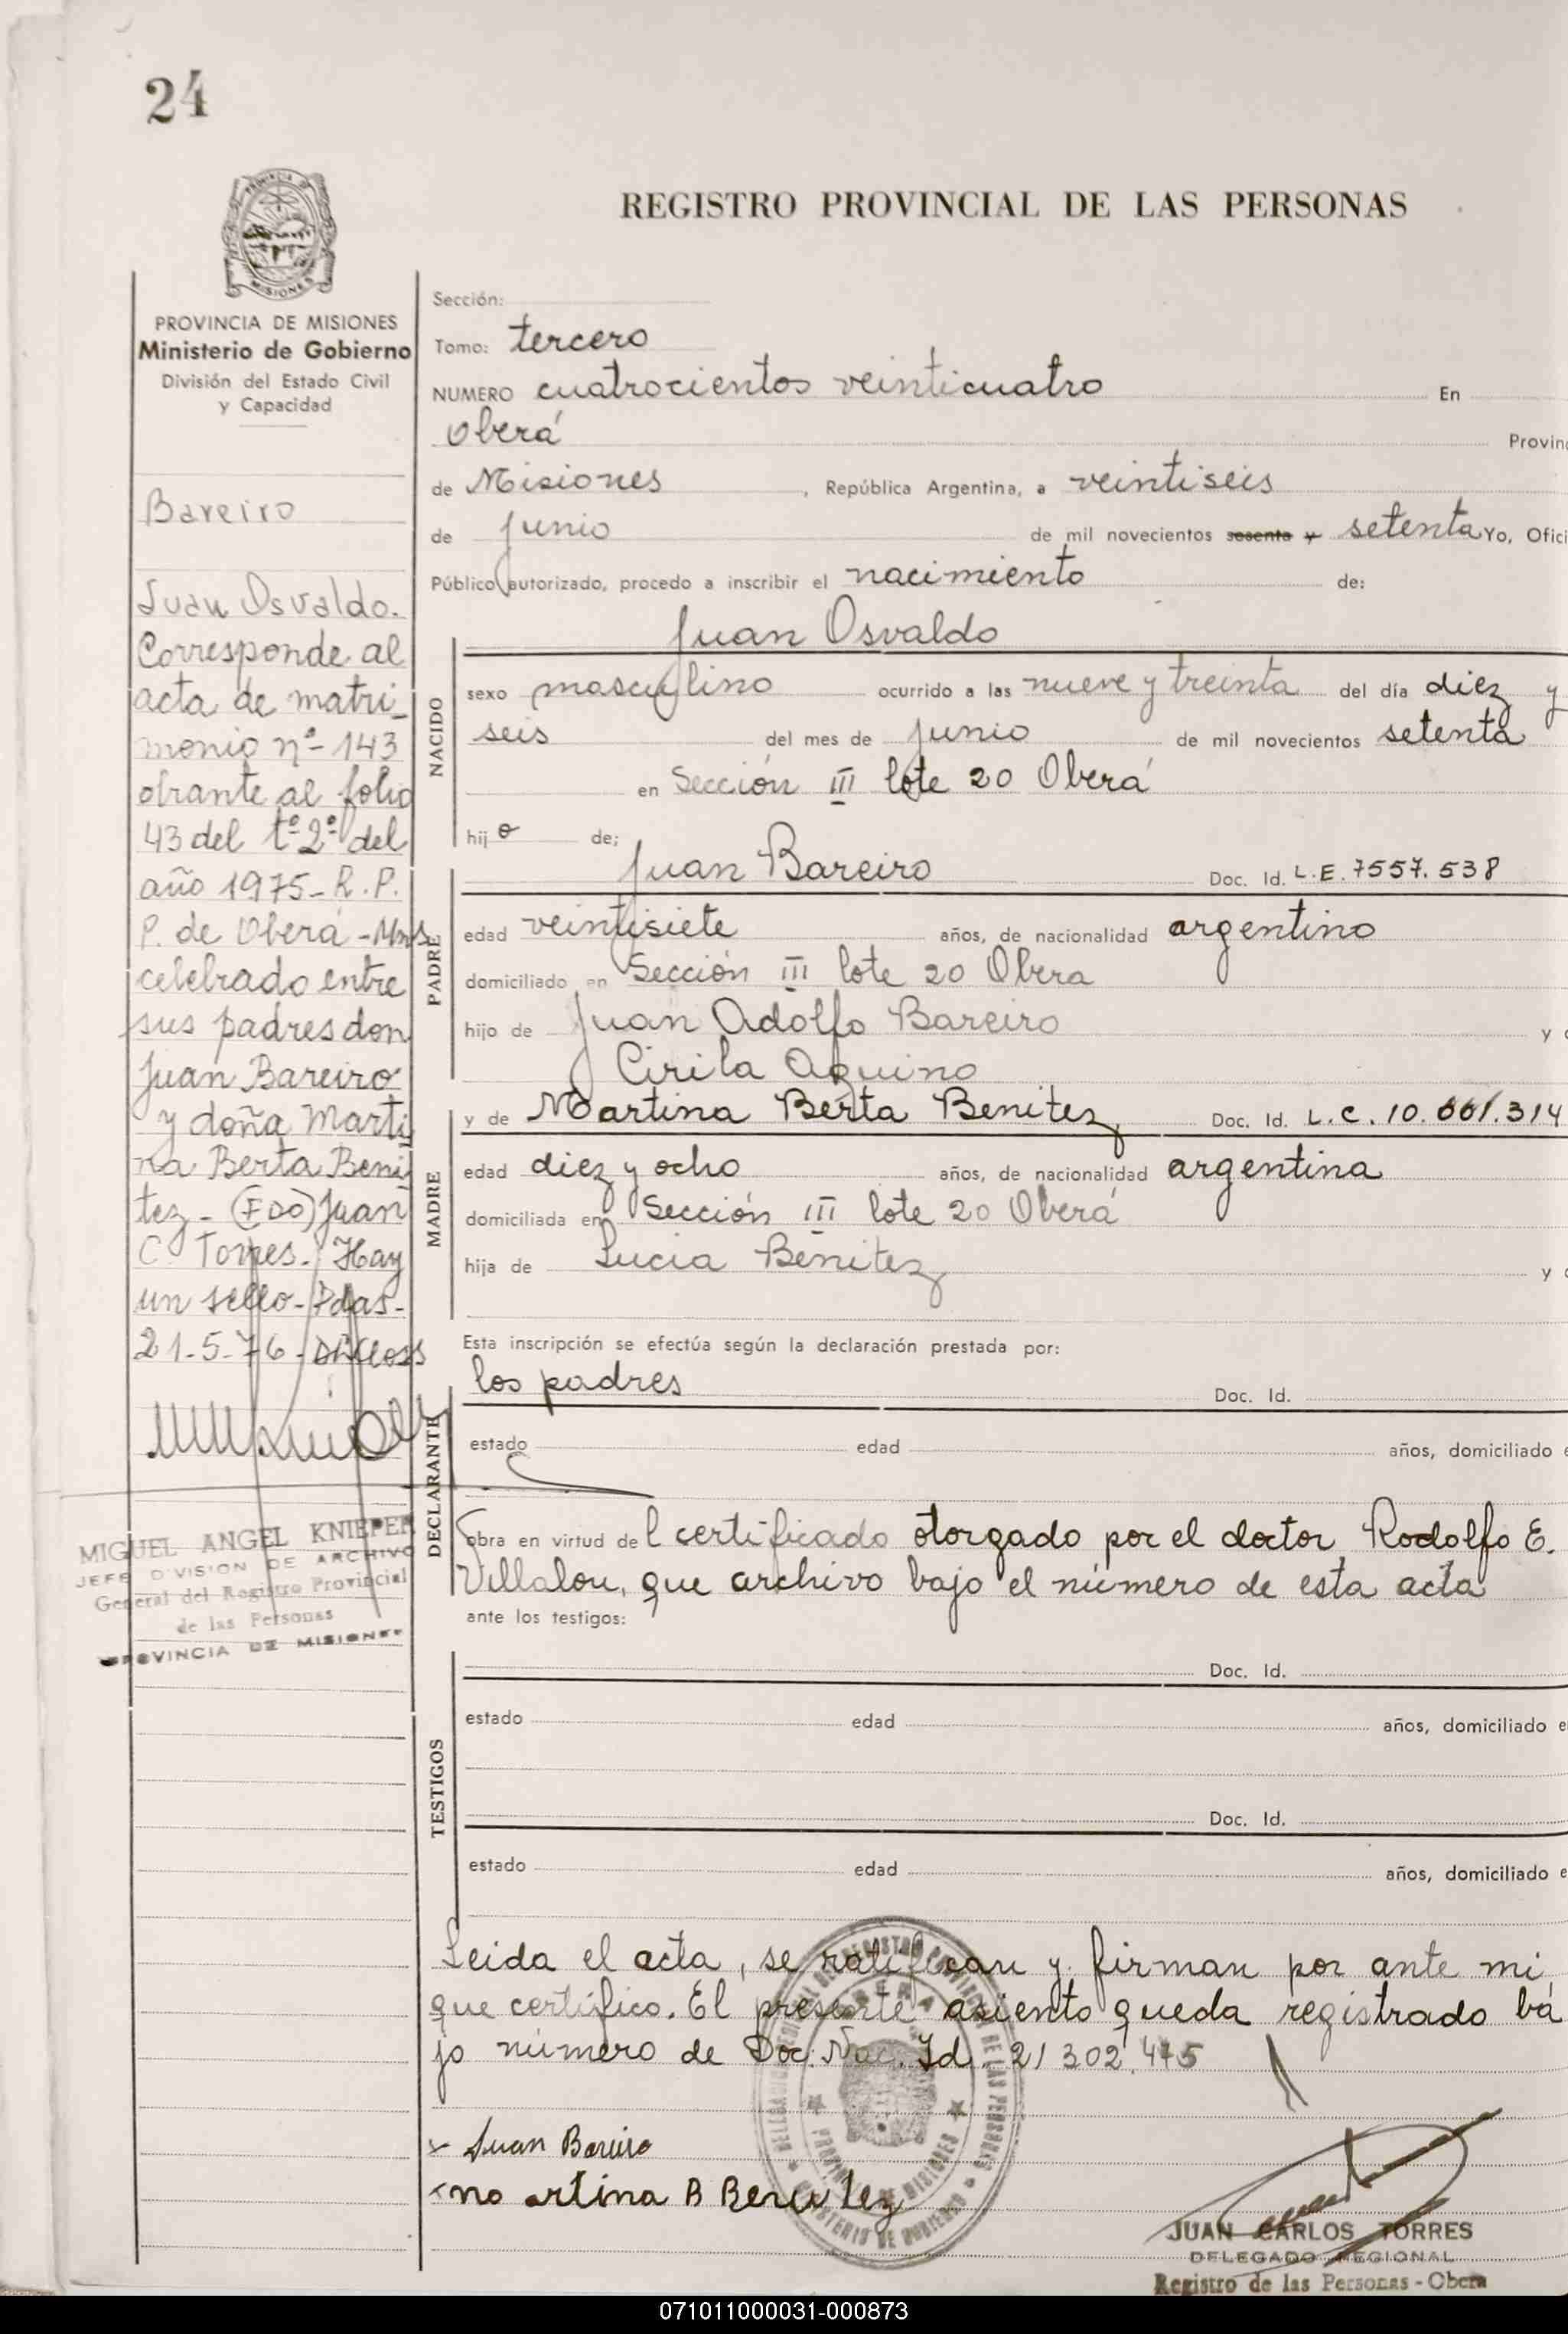 24
REGISTRO PROVINCIAL DE LAS PERSONAS
PROVINCIA DE MISIONES
Ministerio de Gobierno
División del Estado Civil
y Capacidad
Bareiro
Juan Osvaldo.
Corresponde al
acta de matri-
monio nº 143
obrante al folio
43 del tº 2º del
año 1975 - R. P.
P. de Oberá - Mns
celebrado entre
sus padres don
Juan Bareiro
y doña Marti
na Berta Beni
tez - (FDO) Juan
C. Torres. Hay
un sello - Pdas -
21-5-76 -
MIGUEL ANGEL KNIEPER
JEFE DIVISION DE ARCHIVO
General del Registro Provincial
de las Personas
PROVINCIA DE MISIONES
Sección:
Tomo: tercero
NUMERO cuatrocientos veinticuatro En
Oberá Provin
de Misiones, República Argentina, a veintiseis
de junio de mil novecientos sesenta y setenta Yo, Ofici
Público autorizado, procedo a inscribir el nacimiento de:
Juan Osvaldo
NACIDO
sexo masculino ocurrido a las nueve y treinta del día diez y
seis del mes de junio de mil novecientos setenta
en Sección III lote 20 Oberá
hijo de;
Juan Bareiro Doc. Id. L.E. 7557.538
PADRE
edad veintisiete años, de nacionalidad argentino
domiciliado en Sección III lote 20 Obera
hijo de Juan Adolfo Bareiro y
Cirila Aquino
y de Martina Berta Benitez Doc. Id. L.C. 10.661.314
MADRE
edad diez y ocho años, de nacionalidad argentina
domiciliada en Sección III lote 20 Oberá
hija de Lucia Benitez y
Esta inscripción se efectúa según la declaración prestada por:
los padres Doc. Id.
DECLARANTE
estado edad años, domiciliado e
obra en virtud del certificado otorgado por el doctor Rodolfo E.
Villalou, que archivo bajo el número de esta acta
ante los testigos:
Doc. Id.
TESTIGOS
estado edad años, domiciliado e
Doc. Id.
estado edad años, domiciliado e
Leida el acta, se ratifican y firman por ante mi,
que certifico. El presente asiento queda registrado ba
jo número de Doc. Nac. Id. 21 302.475
Juan Bareiro
Martina B Benitez
JUAN CARLOS TORRES
DELEGADO REGIONAL
Registro de las Personas - Obera
071011000031-000873